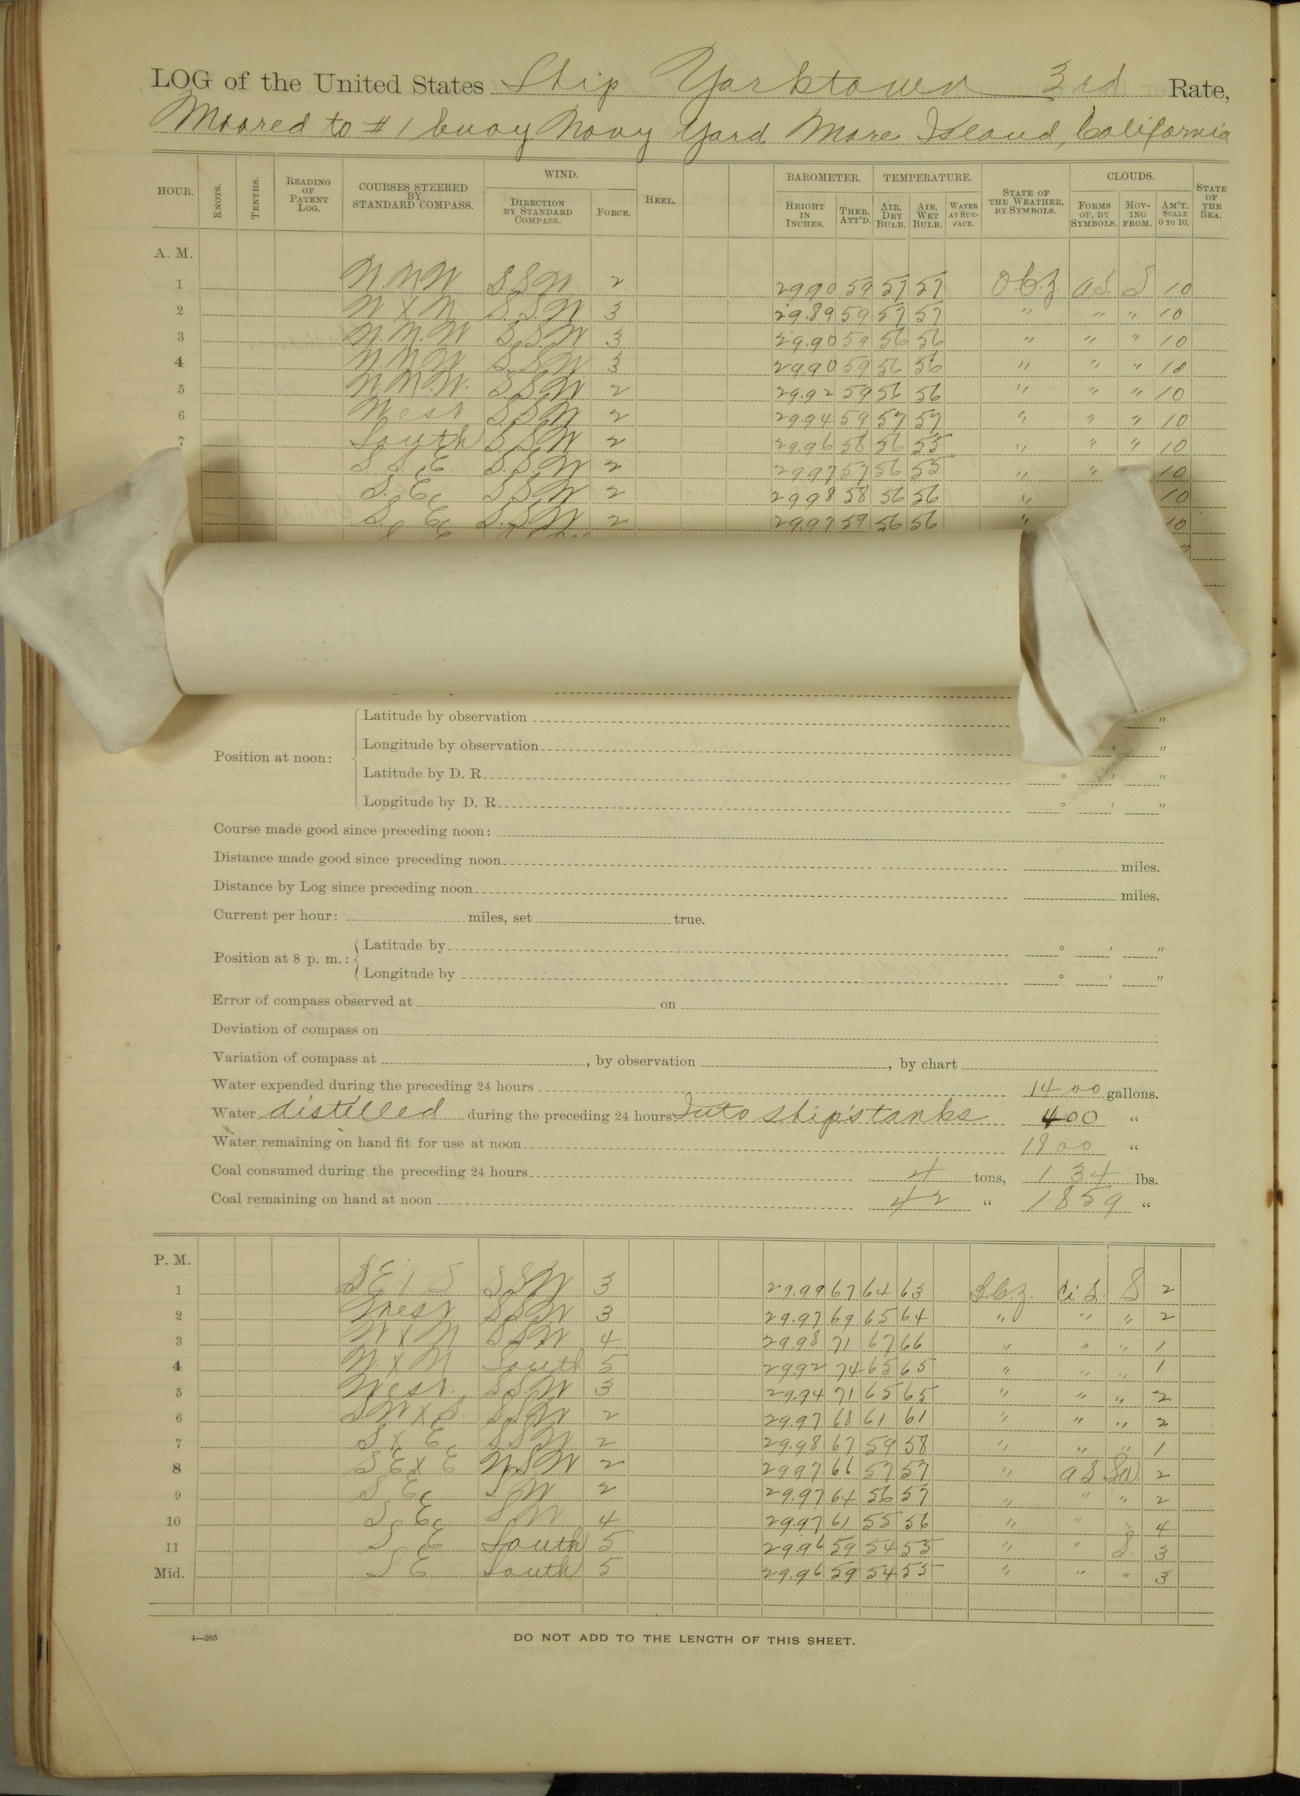 LOG of the United States Ship Yorktown 3rd Rate,
Moored to #1 buoy Navy Yard Mare Island, California
HOUR. KNOTS. TENTHS. READING OF PATENT LOG. COURSES STEERED BY STANDARD COMPASS. WIND. DIRECTION BY STANDARD COMPASS. FORCE. HEEL. BAROMETER. HEIGHT IN INCHES. THER. ATT'D. TEMPERATURE. AIR, DRY BULB. AIR, WET BULB. WATER AT SUR-FACE. STATE OF THE WEATHER, BY SYMBOLS. CLOUDS. FORMS OF, BY SYMBOLS. MOV-ING FROM. AM'T. SCALE 0 TO 10. STATE OF THE SEA.
A. M.
1 N.N.W S.S.W 2 29.90 59 57 57 O.c.z. a.S. S 10
2 W x N S.S.W 3 29.89 59 57 57 " " " 10
3 N.N.W S.S.W 3 29.90 59 56 56 " " " 10
4 N.N.W S.S.W 3 29.90 59 56 56 " " " 10
5 N.N.W. S.S.W 2 29.92 59 56 56 " " " 10
6 West S.S.W 2 29.94 59 57 57 " " " 10
7 South S.S.W 2 29.96 58 56 55 " " " 10
S.S.E. S.S.W 2 29.97 57 56 55 " " 10
S.E. S.S.W 2 29.98 58 56 56 " 10
S.E. S.S.W 2 29.97 59 56 56 " 10
Position at noon: Latitude by observation "
Longitude by observation ' "
Latitude by D. R. ° ' "
Longitude by D. R. ° ' "
Course made good since preceding noon:
Distance made good since preceding noon miles.
Distance by Log since preceding noon miles.
Current per hour: miles, set true.
Position at 8 p. m.: Latitude by ° ' "
Longitude by ° ' "
Error of compass observed at on
Deviation of compass on
Variation of compass at , by observation , by chart
Water expended during the preceding 24 hours 1400 gallons.
Water distilled during the preceding 24 hours Into ship's tanks 400 "
Water remaining on hand fit for use at noon 1900 "
Coal consumed during the preceding 24 hours 4 tons, 134 lbs.
Coal remaining on hand at noon 42 " 1859 "
P. M.
1 SE x S SSW 3 29.99 67 64 63 b.c.z. Ci S. S 2
2 West SSW 3 29.97 69 65 64 " " " 2
3 W x N SSW 4 29.98 71 67 66 " " " 1
4 W x N South 5 29.92 74 65 65 " " " 1
5 West. SSW 3 29.94 71 65 65 " " " 2
6 SW x S. SSW 2 29.97 68 61 61 " " " 2
7 S x E. SSW 2 29.98 67 59 58 " " " 1
8 SE x E WSW 2 29.97 66 57 57 " a S SW. 2
9 S E. SW 2 29.97 64 56 57 " " " 2
10 S E. SW 4 29.97 61 55 56 " " " 4
11 S E South 5 29.96 59 54 55 " " S. 3
Mid. S E South 5 29.96 59 54 55 " " " 3
4—265
DO NOT ADD TO THE LENGTH OF THIS SHEET.